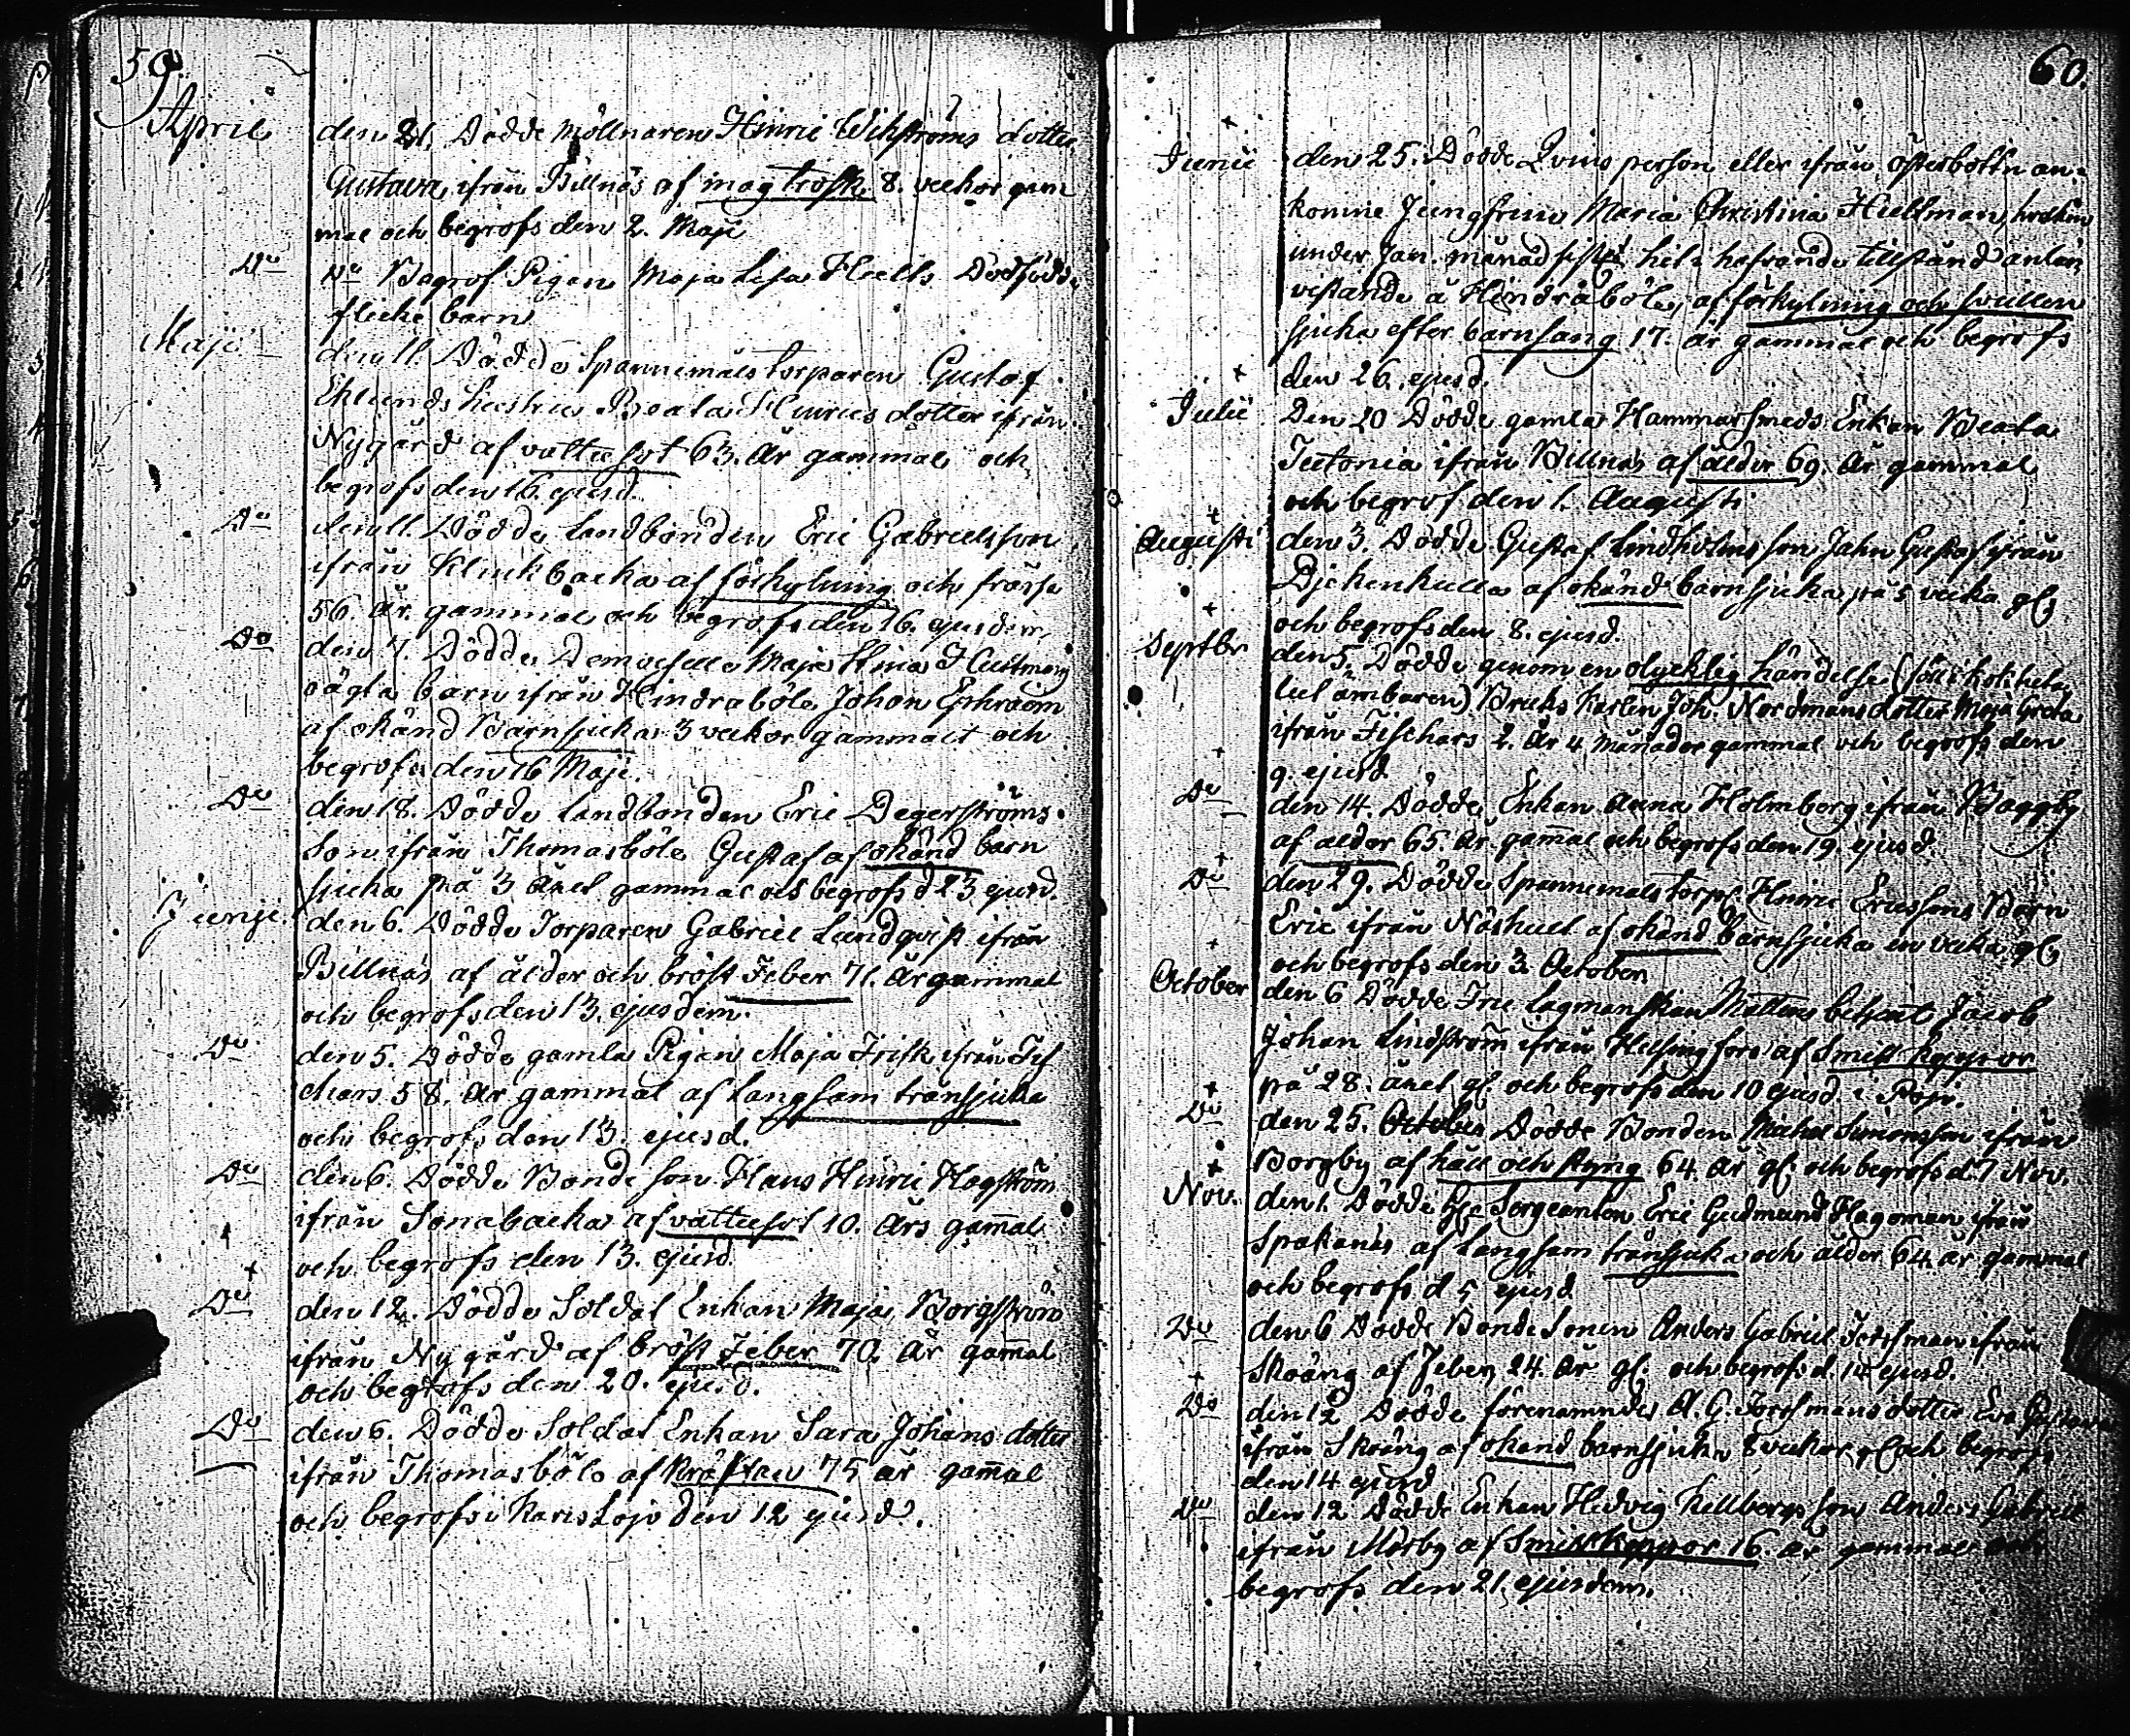 59.
April den 21. Dödde möllnaren Hinric Wikströms dotter
Gustava ifrån Billnäs af magtrosk 8. veckor gam
mal och begrofs den 2. Maji
Do Do Begrof Pigan Maja Lisa Hells Dödfödde
flicke barn
Maji den 11. Dödde Spannemåls torparen Gustaf
Eklunds hustru Beata Hinrics dotter ifrån
Nygård af vattusot 63. År gammal och
begrofs den 16. ejusd.
Do den 11. Dödde Landbonden Eric Gabrielsson
ifrån Klinkbacka af förkylning och frossa
56. År. gammal och begrofs den 16. ejusdem
Do den 7. Dödde Demoiselle Maja Stina Hultmans
oägta barn ifrån Hindraböle Johan Ephraim
af okänd Barnsjuka 3 veckor gammalt och
begrofs den 16 Maji.
Do den 18. Dödde Landbonden Eric Degerströms
Son ifrån Thomasböle Gustaf af okänd barn
sjuka på 3 året gammal och begrofs d 23 ejusd.
Junji den 6. Dödde Torparen Gabriel Lundqvist ifrån
Billnäs af ålder och bröst Feber 71. År gammal
och begrofs den 13. ejusdem.
Do den 5. Dödde gamla Pigan Maja Frisk ifrån Fis
chars 58. År gammal af Langsam trånsjuka
och begrofs den 13. ejusd.
Do den 6. Dödde Bonde son Hans Hinric Hogström
ifrån Sonabacka af vattusot 10. Års gamal
och begrofs den 13. ejusd.
Do den 12. Dödde Soldat Enkan Maja Borgström
ifrån Nygård af bröst Feber 70. År gamal
och begrofs den 20. ejusd.
Do den 6. Dödde Soldat Enkan Sara Johans dotter
ifrån Thomasböle af Kräftan 75 år gamal
och begrofs i Karis Lojo den 12 ejusd.
60.
Junii den 25. Dödde Qvins person eller ifrån österbottn an-
komne Jungfrun Maria Christina Hultman, hvilken
under Jan. månad sistl. hit i hafvande tillstånd anlän,
vistande å Hindraböle, af förkylning och svullen
sjuka efter barnsäng 17. år gammal och begrofs
den 26. ejusd.
Julii Den 20 Dödde gamla Hammarsmeds Enkan Beata
Tutonia ifrån Billnäs af ålder 69. År gammal
och begrof den 1. Augusti
Augusti den 3. Dödde Gustaf Lindholms son Jahn Gustaf ifrån
Djekenkulla af okänd barnsjuka på 5 veka gl.
och begrofs den 8. ejusd.
Septbr den 5. Dödde genom en olycklig händelse (föll i kok heta
lut ämbaren) Bruks Karlen Joh. Nordmans dotter Maja Greta
ifrån Fischars 2. År 4 Månader gammal och begrofs den
9. ejusd
Do den 14. Dödde Enkan Anna Holmberg ifrån Baggby
af alder 65. År. gamal och begrofs den 19. ejusd.
Do den 29. Dödde Spannemåls torp. Hinric Ericssons Barn
Eric ifrån Näshult af okänd barnsjuka en vecka gl.
och begrofs den 3. October
October den 6 Dödde Fru Lagmanskan betjent Jacob
Johan Lindström ifrån Helsingfors af Smitt koppor
på 28. året gl. och begrofs den 10 ejusd. i Pojo.
Do den 25. October Dödde Bonden Michel Simonsson ifrån
Borgby af håll och styng 64. År gl. och begrofs d. 7 Nov.
Nov. den 1. Dödde Sergeanten Eric Gudmund Hagoman ifrån
Spakanäs af Langsam trånsjuka och ålder 64. år gammal
och begrofs d 5 ejusd
Do den 6 Dödde Bonde Sonen Anders Gabriel Forsman ifrån
Skoäng af Feber 24. År gl. och begrofs d. 14 ejusd.
Do den 12 Dödde förenamnde A. G. Forsmans dotter Eva Gustava
ifrån Skoäng af okänd barnsjuka 8 veckor gl. och begrofs
den 14 ejusd
Do den 12 Dödde Enkan Hedvig Kullbergs son Anders Gabriel
ifrån Mörby af Smitt koppor 16. år gammal och
begrofs den 21. ejusdem.